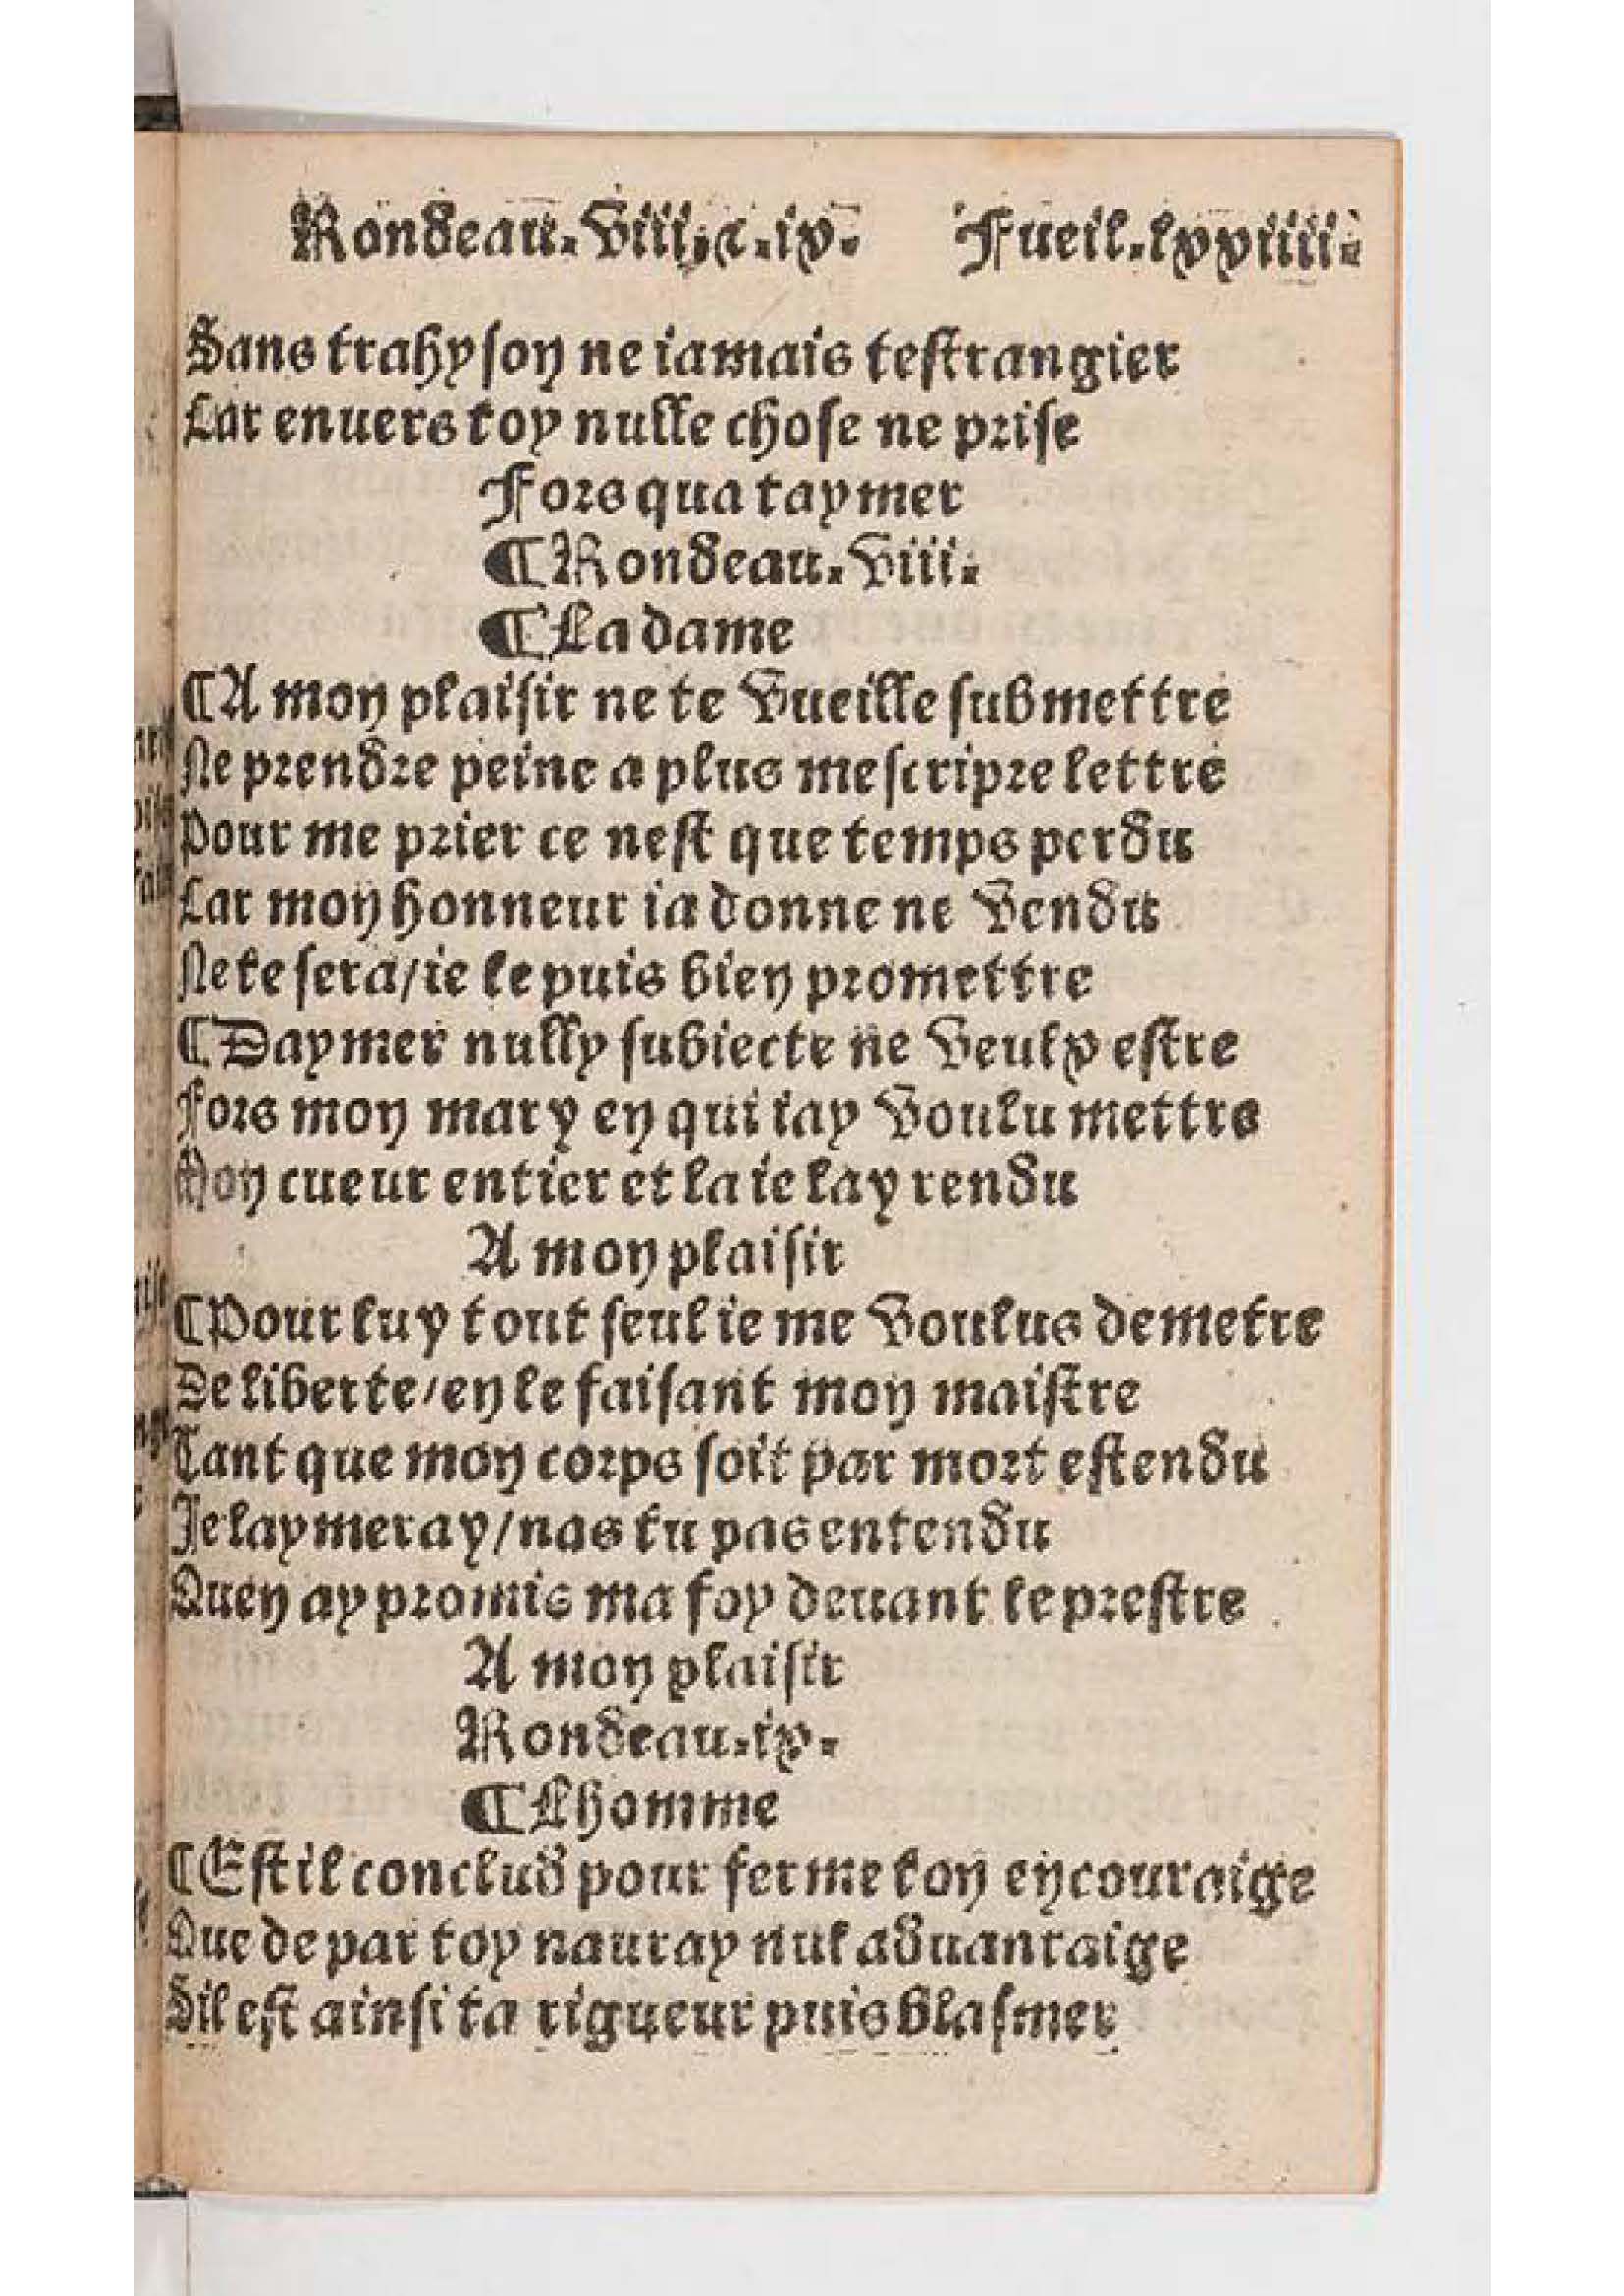 Rondeau.viii.⁊.ix. Fueil.lxxiiii.
Sans trahyson ne iamais testrangier
Car enuers toy nulle chose ne prise
Fors qua taymer
¶Rondeau.viii.
¶La dame
¶A mon plaisir ne te vueille submettre
Ne prendre peine a plus mescripre lettre
Pour me prier ce nest que temps perdu
Car mon honneur ia donne ne vendu
Ne te sera/ie le puis bien promettre
¶Daymer nully subiecte ne veulx estre
Fors mon mary en qui iay voulu mettre
Mon cueur entier et la ie lay rendu
A mon plaisir
¶Pour luy tout seul ie me voulus demetre
De liberte/en le faisant mon maistre
Tant que mon corps soit par mort estendu
Je laymeray/nas tu pas entendu
Quen ay promis ma foy deuant le prestre
A mon plaisir
Rondeau.ix.
¶Lhomme
¶Est il conclud pour ferme ton en couraige
Que de par toy nauray nul aduantaige
Sil est ainsi ta rigueur puis blasmer